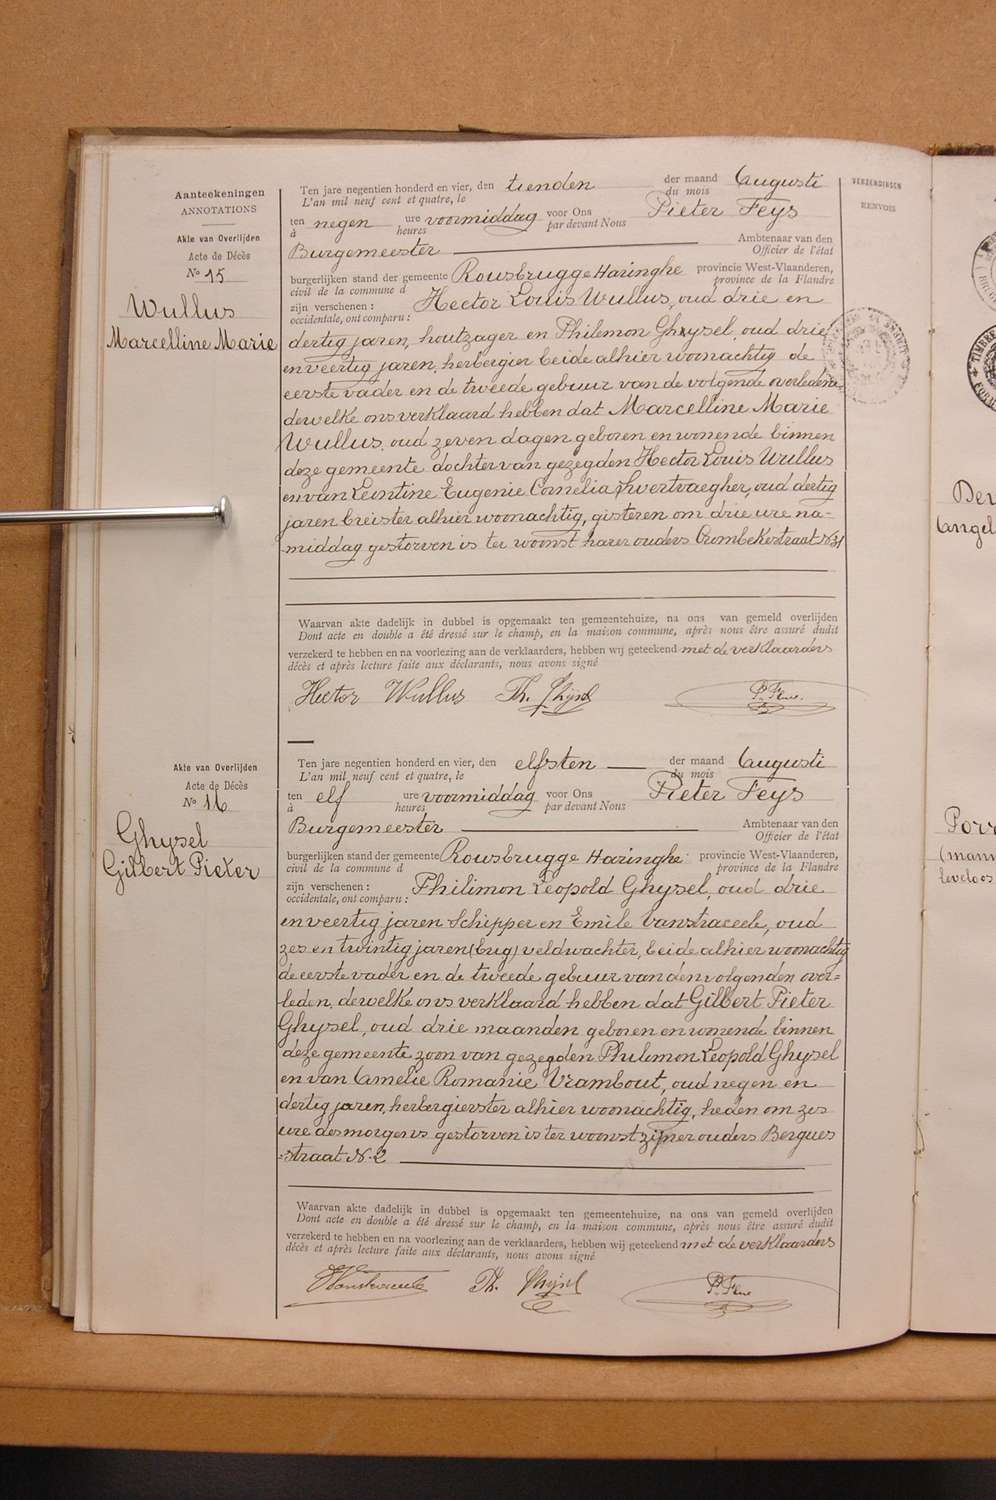 Aanteekeningen
ANNOTATIONS
Akte van Overlijden
Acte de Décès
No 15
Wullus
Marcelline Marie
Ten jare negentien honderd en vier, den tienden der maand Augusti
L'an mil neuf cent et quatre, le du mois
ten negen ure voormiddag voor Ons Pieter Feys
à heures par devant Nous
Burgemeester Ambtenaar van den
Officier de l'état
burgerlijken stand der gemeente Rousbrugge Haringhe provincie West-Vlaanderen,
civil de la commune d province de la Flandre
zijn verschenen : Hector Louis Wullus, oud drie en
occidentale, ont comparu :
dertig jaren, houtzager en Philemon Ghysel, oud drie
en veertig jaren, herbergier beide alhier woonachtig de
eerste vader en de tweede gebuur van de volgende overledene
dewelke ons verklaard hebben dat Marcelline Marie
Wullus, oud zeven dagen geboren en wonende binnen
deze gemeente dochter van gezegden Hector Louis Wullus
en van Leontine Eugenie Cornelia Swertvaegher, oud dertig
jaren breister alhier woonachtig, gisteren om drie ure na-
middag gestorven is ter woonst harer ouders Crombekestraat N. 31
Waarvan akte dadelijk in dubbel is opgemaakt ten gemeentehuize, na ons van gemeld overlijden
Dont acte en double a été dressé sur le champ, en la maison commune, après nous être assuré dudit
verzekerd te hebben en na voorlezing aan de verklaarders, hebben wij geteekend met de verklaarders
décès et après lecture faite aux déclarants, nous avons signé
Hector Wullus Ph. Ghijsel P. Feys
Akte van Overlijden
Acte de Décès
No 16
Ghysel
Gilbert Pieter
Ten jare negentien honderd en vier, den elfsten der maand Augusti
L'an mil neuf cent et quatre, le du mois
ten elf ure voormiddag voor Ons Pieter Feys
à heures par devant Nous
Burgemeester Ambtenaar van den
Officier de l'état
burgerlijken stand der gemeente Rousbrugge Haringhe provincie West-Vlaanderen,
civil de la commune d province de la Flandre
zijn verschenen : Philimon Leopold Ghysel, oud drie
occidentale, ont comparu :
en veertig jaren Schipper en Emile Vanstraceele, oud
zes en twintig jaren (Eug) veldwachter, beide alhier woonachtig
de eerste vader en de tweede gebuur van den volgenden over-
leden, dewelke ons verklaard hebben dat Gilbert Pieter
Ghysel, oud drie maanden geboren en wonende binnen
deze gemeente zoon van gezegden Philimon Leopold Ghysel
en van Amelie Romanie Vrambout, oud negen en
dertig jaren, herbergierster alhier woonachtig, heden om zes
ure des morgens gestorven is ter woonst zijner ouders Bergues
-straat N. 2
Waarvan akte dadelijk in dubbel is opgemaakt ten gemeentehuize, na ons van gemeld overlijden
Dont acte en double a été dressé sur le champ, en la maison commune, après nous être assuré dudit
verzekerd te hebben en na voorlezing aan de verklaarders, hebben wij geteekend met de verklaarders
décès et après lecture faite aux déclarants, nous avons signé
Ph. Ghijsel P. Feys
VERZENDINGEN
RENVOIS
Angel
Porr
(mann
leveloos